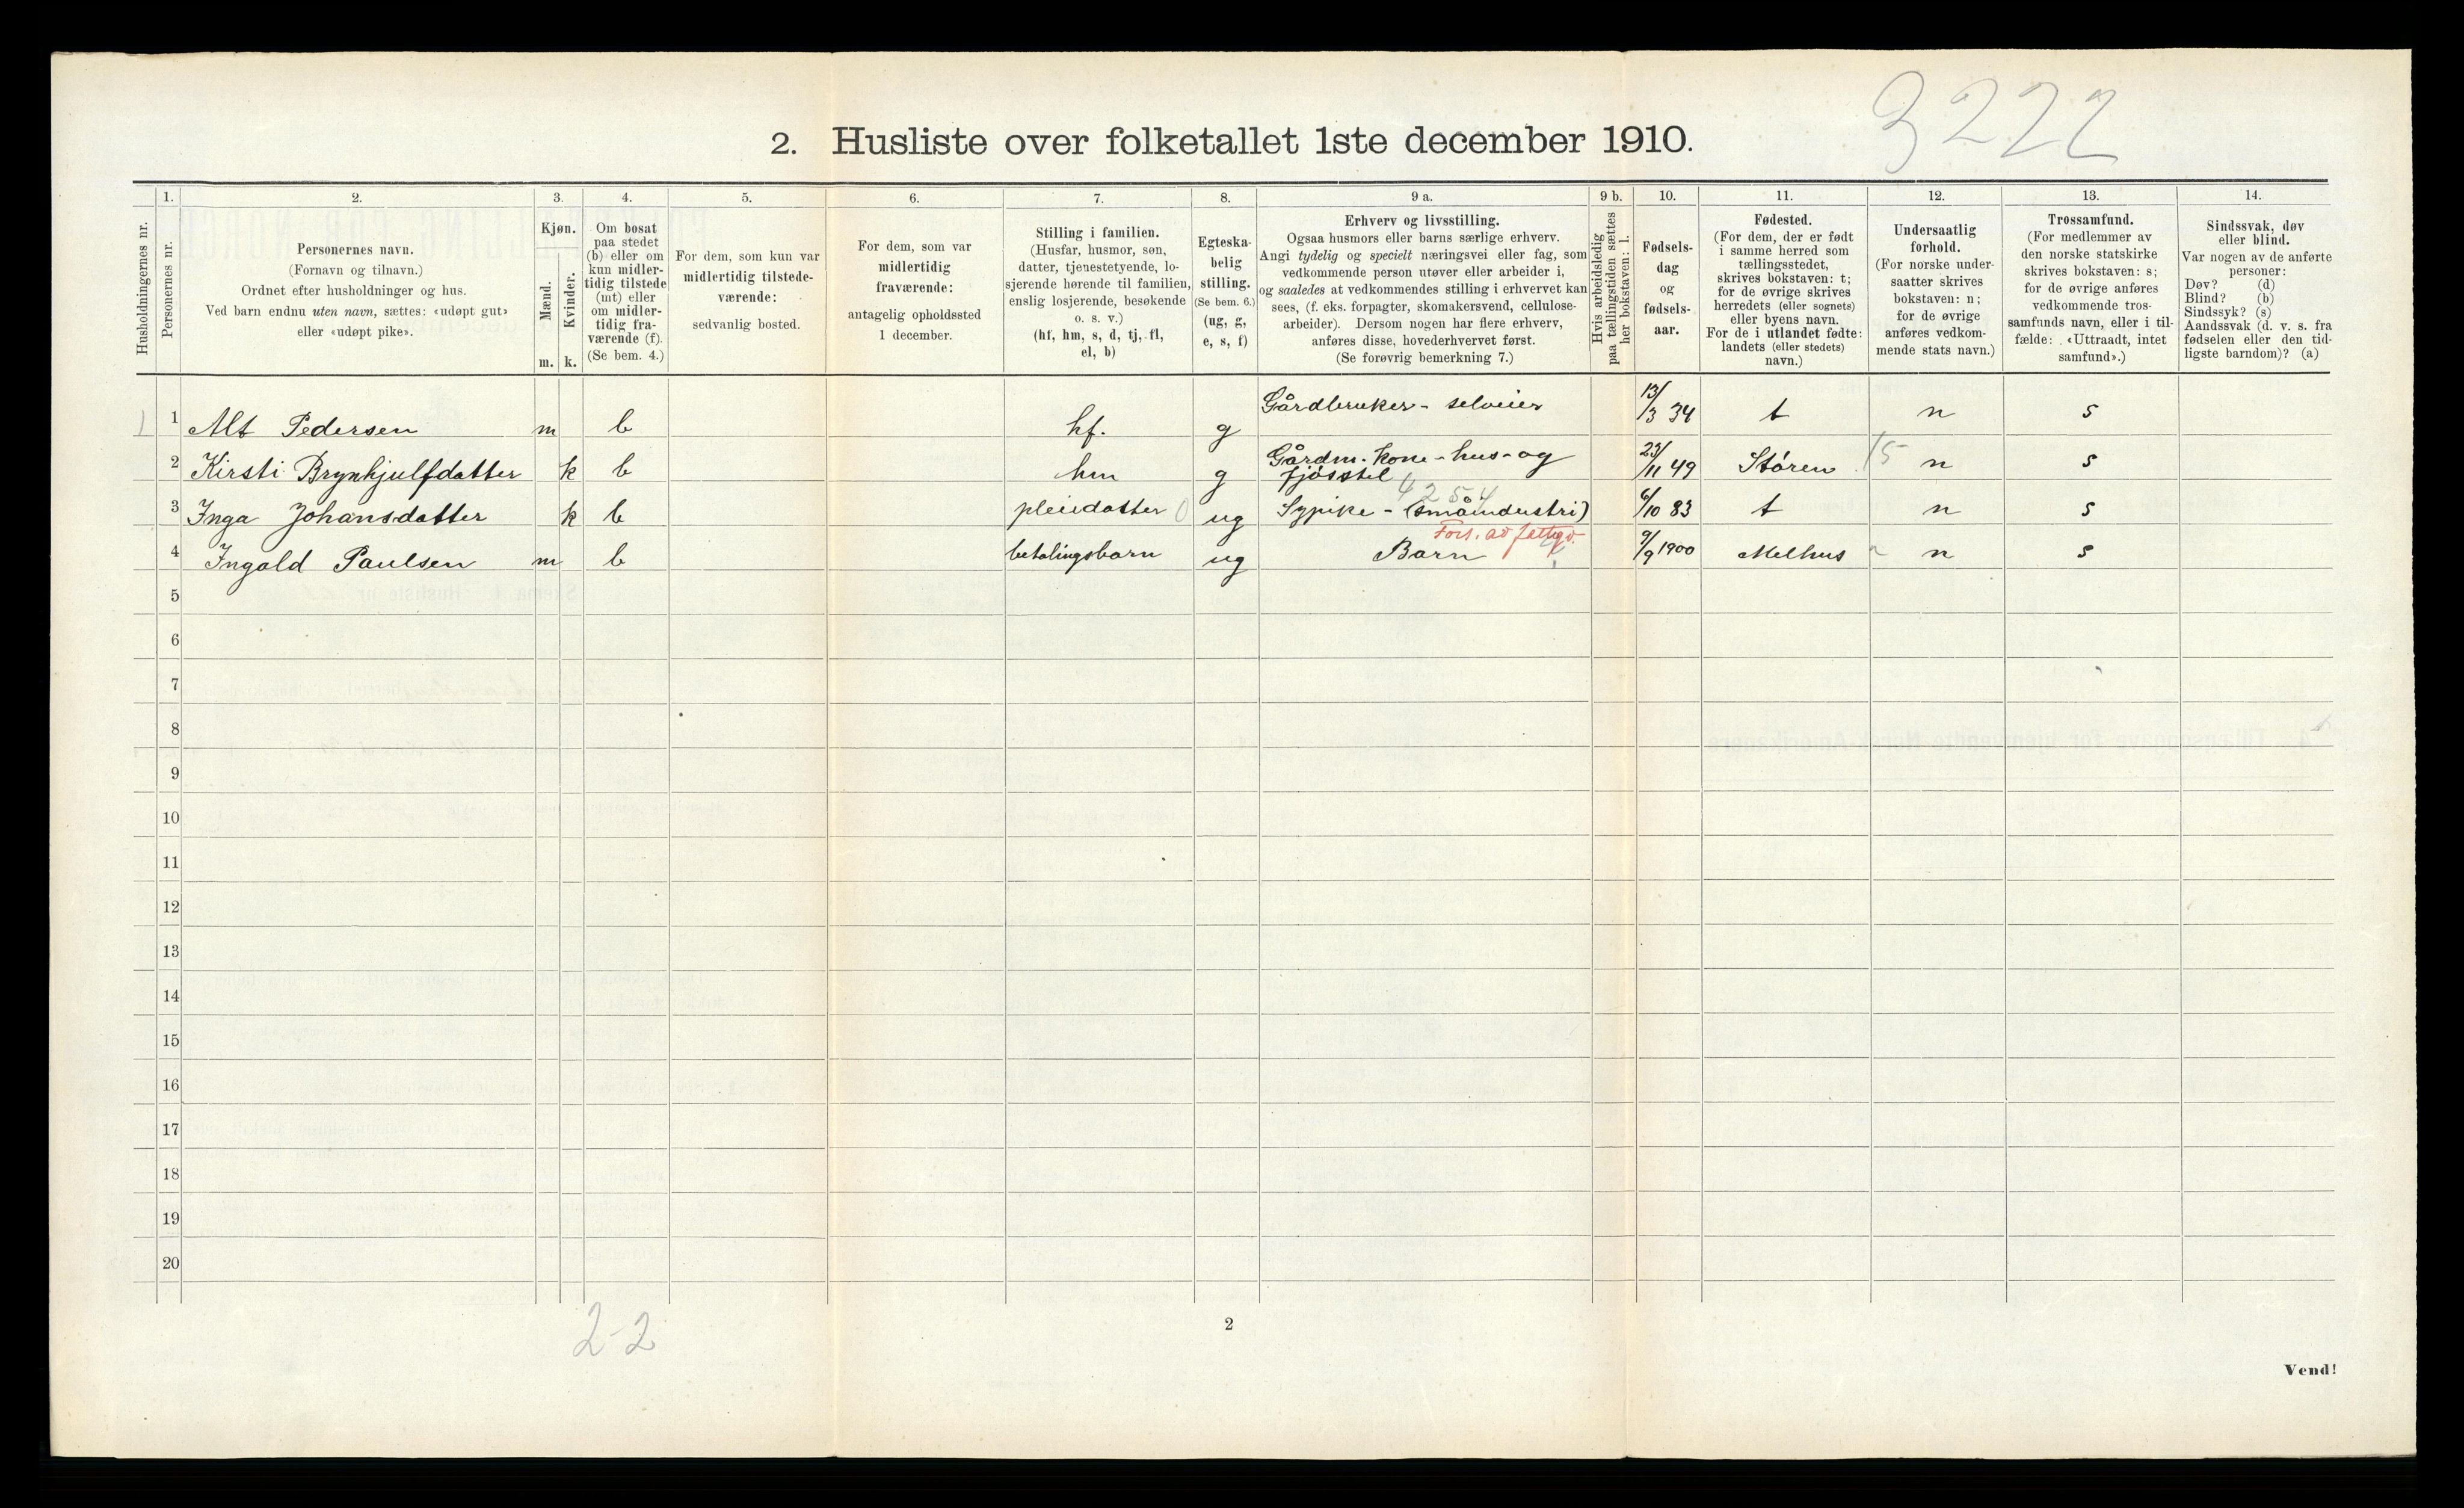 3222
2. Husliste over folketallet 1ste december 1910.
Husholdningernes nr.
1.
Personernes nr.
2.
Personernes navn.
(Fornavn og tilnavn.)
Ordnet efter husholdninger og hus.
Ved barn endnu uten navn, sættes: «udøpt gut»
eller «udøpt pike».
3.
Kjøn.
Mænd.
Kvinder.
m. k.
4.
Om bosat
paa stedet
(b) eller om
kun midler-
tidig tilstede
(mt) eller
om midler-
tidig fra-
værende (f).
(Se bem. 4.)
5.
For dem, som kun var
midlertidig tilstede-
værende:
sedvanlig bosted.
6.
For dem, som var
midlertidig
fraværende:
antagelig opholdssted
1 december.
7.
Stilling i familien.
(Husfar, husmor, søn,
datter, tjenestetyende, lo-
sjerende hørende til familien,
enslig losjerende, besøkende
o. s. v.)
(hf, hm, s, d, tj, fl,
el, b)
8.
Egteska-
belig
stilling.
(Se bem. 6.)
(ug, g,
e, s, f)
9 a.
Erhverv og livsstilling.
Ogsaa husmors eller barns særlige erhverv.
Angi tydelig og specielt næringsvei eller fag, som
vedkommende person utøver eller arbeider i,
og saaledes at vedkommendes stilling i erhvervet kan
sees, (f. eks. forpagter, skomakersvend, cellulose-
arbeider). Dersom nogen har flere erhverv,
anføres disse, hovederhvervet først.
(Se forøvrig bemerkning 7.)
9 b.
Hvis arbeidsledig
paa tællingstiden sættes
her bokstaven: l.
10.
Fødsels-
dag
og
fødsels-
aar.
11.
Fødested.
(For dem, der er født
i samme herred som
tællingsstedet,
skrives bokstaven: t;
for de øvrige skrives
herredets (eller sognets)
eller byens navn.
For de i utlandet fødte:
landets (eller stedets)
navn.)
12.
Undersaatlig
forhold.
(For norske under-
saatter skrives
bokstaven: n;
for de øvrige
anføres vedkom-
mende stats navn.)
13.
Trossamfund.
(For medlemmer av
den norske statskirke
skrives bokstaven: s;
for de øvrige anføres
vedkommende tros-
samfunds navn, eller i til-
fælde: «Uttraadt, intet
samfund».)
14.
Sindssvak, døv
eller blind.
Var nogen av de anførte
personer:
Døv? (d)
Blind? (b)
Sindssyk? (s)
Aandssvak (d. v. s. fra
fødselen eller den tid-
ligste barndom)? (a)
1 1 Alt Pedersen m b hf. g Gårdbruker - selveier 13/3 34 t n s
2 Kirsti Brynhjulfdatter k b hm g Gårdm. kone - hus- og
fjøsstel 23/11 49 Støren 15 n s
4254
3 Inga Johansdatter k b pleiedatter 0 ug Sypike - (småindustri) 6/10 83 t n s
Fors. av fattigv.
4 Ingald Paulsen m b betalingsbarn ug Barn 9/9 1900 Melhus n s
5
6
7
8
9
10
11
12
13
14
15
16
17
18
19
20
2-2
2
Vend!